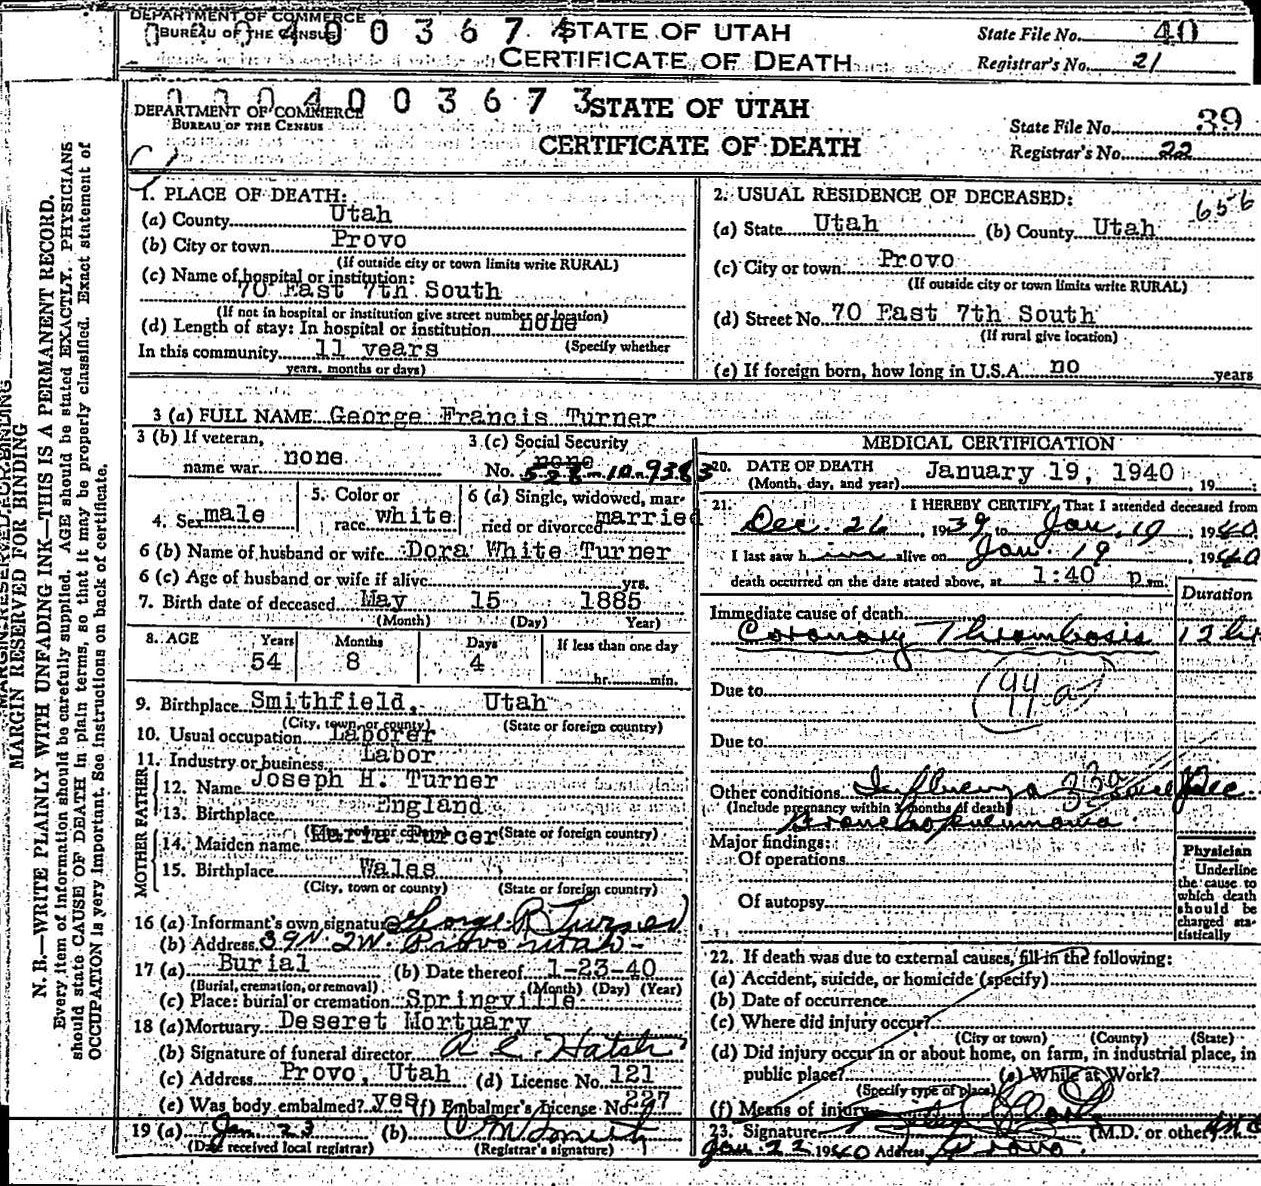 DEPARTMENT OF COMMERCE
BUREAU OF THE CENSUS
STATE OF UTAH
CERTIFICATE OF DEATH
State File No. 40
Registrar's No. 21
0 0 0 4 0 0 3 6 7 3
DEPARTMENT OF COMMERCE
BUREAU OF THE CENSUS
STATE OF UTAH
CERTIFICATE OF DEATH
State File No. 39
Registrar's No. 22
MARGIN RESERVED FOR BINDING
N. B.—WRITE PLAINLY WITH UNFADING INK—THIS IS A PERMANENT RECORD.
Every item of information should be carefully supplied. AGE should be stated EXACTLY. PHYSICIANS
should state CAUSE OF DEATH in plain terms, so that it may be properly classified. Exact statement of
OCCUPATION is very important. See instructions on back of certificate.
1. PLACE OF DEATH:
(a) County Utah
(b) City or town Provo
(If outside city or town limits write RURAL)
(c) Name of hospital or institution:
70 East 7th South
(If not in hospital or institution give street number or location)
(d) Length of stay: In hospital or institution none
In this community 11 years (Specify whether
years, months or days)
2. USUAL RESIDENCE OF DECEASED: 656
(a) State Utah (b) County Utah
(c) City or town Provo
(If outside city or town limits write RURAL)
(d) Street No. 70 East 7th South
(If rural give location)
(e) If foreign born, how long in U.S.A. no years
3 (a) FULL NAME George Francis Turner
3 (b) If veteran,
name war none
3 (c) Social Security
No. none
528-10-9383
4. Sex male
5. Color or
race white
6 (a) Single, widowed, mar-
ried or divorced married
6 (b) Name of husband or wife Dora White Turner
6 (c) Age of husband or wife if alive yrs.
7. Birth date of deceased May 15 1885
(Month) (Day) Year)
8. AGE Years Months Days If less than one day
54 8 4 hr. min.
9. Birthplace Smithfield, Utah
(City, town or county) (State or foreign country)
10. Usual occupation Laborer
11. Industry or business Labor
FATHER
12. Name Joseph H. Turner
13. Birthplace England
(City, town or county) (State or foreign country)
MOTHER
14. Maiden name Maria Turcer
15. Birthplace Wales
(City, town or county) (State or foreign country)
16 (a) Informant's own signature George B Turner
(b) Address 39 N. 2 W. Provo Utah
17 (a) Burial (b) Date thereof 1-23-40
(Burial, cremation, or removal) (Month) (Day) (Year)
(c) Place: burial or cremation Springville
18 (a) Mortuary Deseret Mortuary
(b) Signature of funeral director
(c) Address Provo, Utah (d) License No. 121
(e) Was body embalmed? yes (f) Embalmer's License No. 227
19 (a) Jan. 23 (b)
(Date received local registrar) (Registrar's signature)
MEDICAL CERTIFICATION
20. DATE OF DEATH January 19, 1940, 19
(Month, day, and year)
21. I HEREBY CERTIFY, That I attended deceased from
Dec. 26, 1939 to Jan. 19 1940
I last saw him alive on Jan. 19 1940
death occurred on the date stated above, at 1:40 p.m.
Duration
Immediate cause of death
Coronary Thrombosis 12 hr
94a
Due to
Due to
Other conditions Influenza 33a Dec.
(Include pregnancy within 3 months of death)
Bronchopneumonia
Major findings:
Of operations
Of autopsy
Physician
Underline
the cause to
which death
should be
charged sta-
tistically
22. If death was due to external causes, fill in the following:
(a) Accident, suicide, or homicide (specify)
(b) Date of occurrence
(c) Where did injury occur?
(City or town) (County) (State)
(d) Did injury occur in or about home, on farm, in industrial place, in
public place? (e) While at Work?
(Specify type of place)
(f) Means of injury
23. Signature (M.D. or other)
Jan. 22 1940 Address Provo.